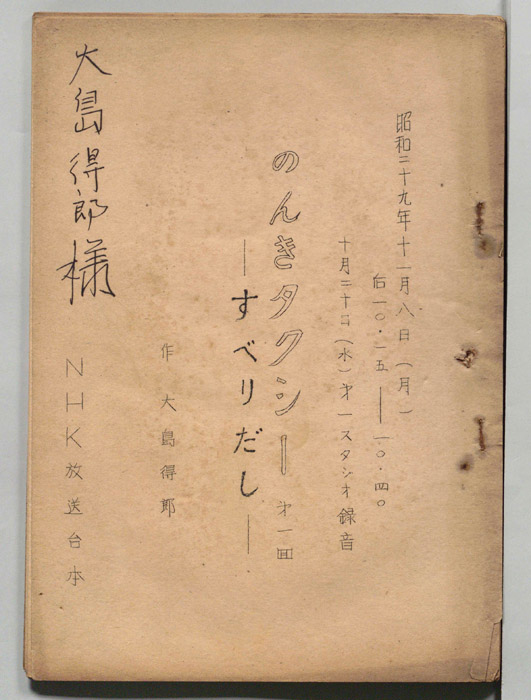 昭和二十九年十一月八日（月）
后一〇・一五──一〇・四〇
十月二十日（水）才一スタジオ録音
のんきタクシー 才一回
─すべりだし─
作 大島得郎
大島得郎様
NHK放送台本